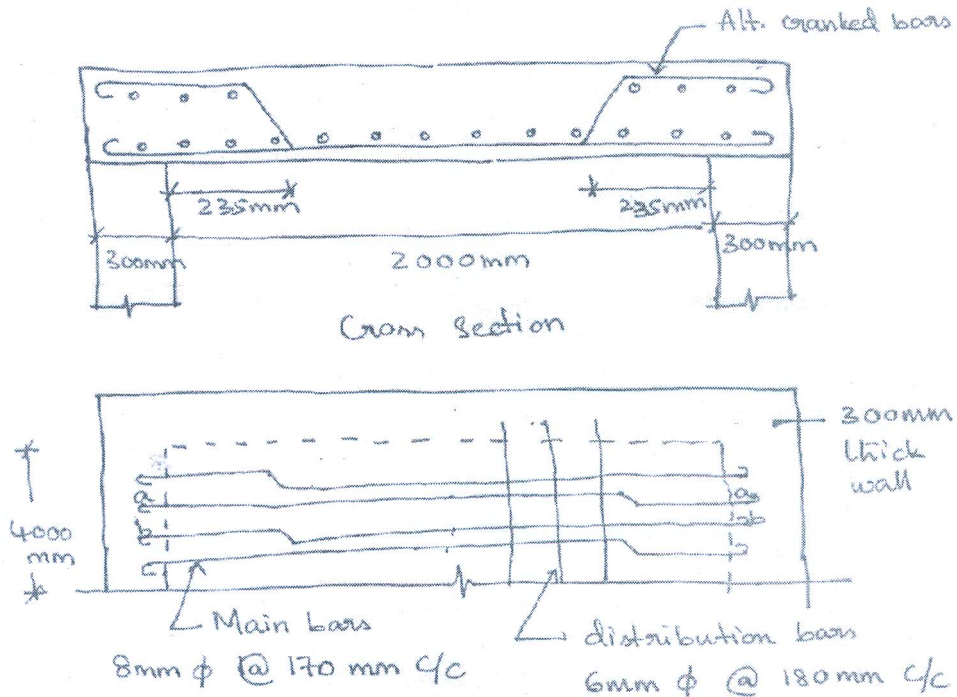 Alt. cranked bars
235mm
235mm
300mm
2000mm
300mm
Cross Section
300mm
thick
wall
a
a
b
b
4000
mm
Main bars
8mm ϕ @ 170 mm c/c
distribution bars
6mm ϕ @ 180mm c/c